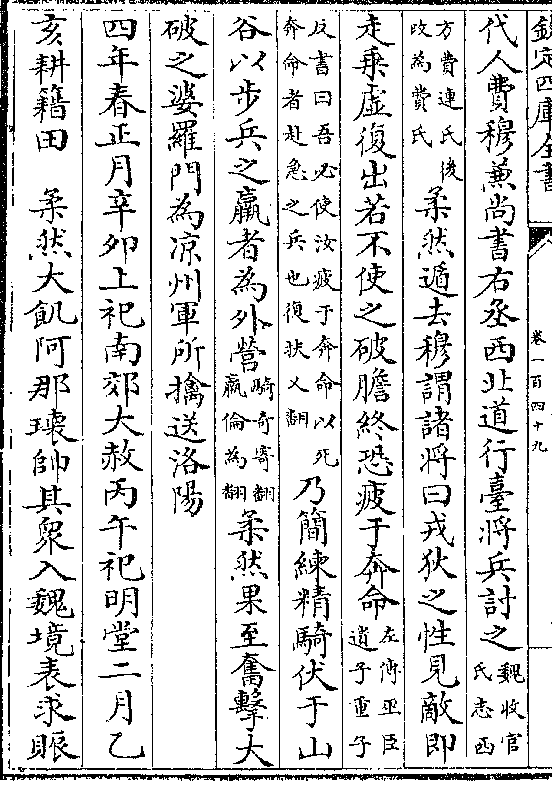 欽定四庫全書
卷一百四十九
代人費穆兼尚書右丞西北道行臺將兵討之魏收官氏志西
方費連氏後改為費氏柔然遁去穆謂諸將曰戎狄之性見敵即
走乗虛復出若不使之破膽終恐疲于奔命左傳巫臣遺子重子
反書曰吾必使汝疲于奔命以死奔命者赴急之兵也復扶又翻乃簡練精騎伏于山
谷以步兵之羸者為外營騎奇寄翻羸倫為翻柔然果至奮擊大
破之婆羅門為凉州軍所擒送洛陽
四年春正月辛卯上祀南郊大赦丙午祀明堂二月乙
亥耕籍田 柔然大飢阿那瓌帥其衆入魏境表求賑